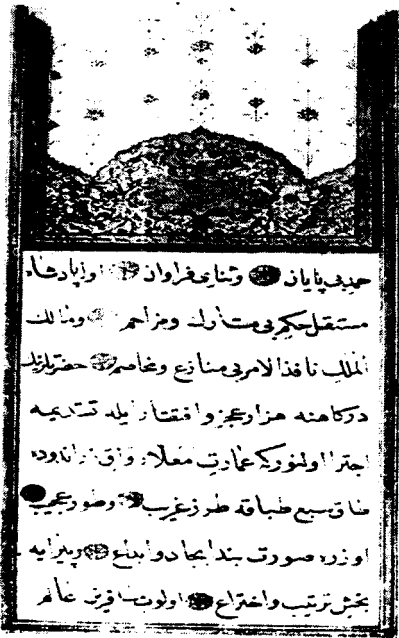 حمد بی پایان و ثنای فراوان اول پادشاه
مستقل حکم بی مشارك و مزاحم و مالك
الملك نافذ الامر بی منازع و مخاصم حضرتلرینك
درکاهنه هزار عجز و افتقار ایله تقدیمه
اجترا اولنور که عمارت معلا
طاق سبع طباقه طرز غریب و طور عجیب
اوزره صورت بند ایجاد و ابداع و پیرایه
بخش ترتیب و اختراع اولوب عالم